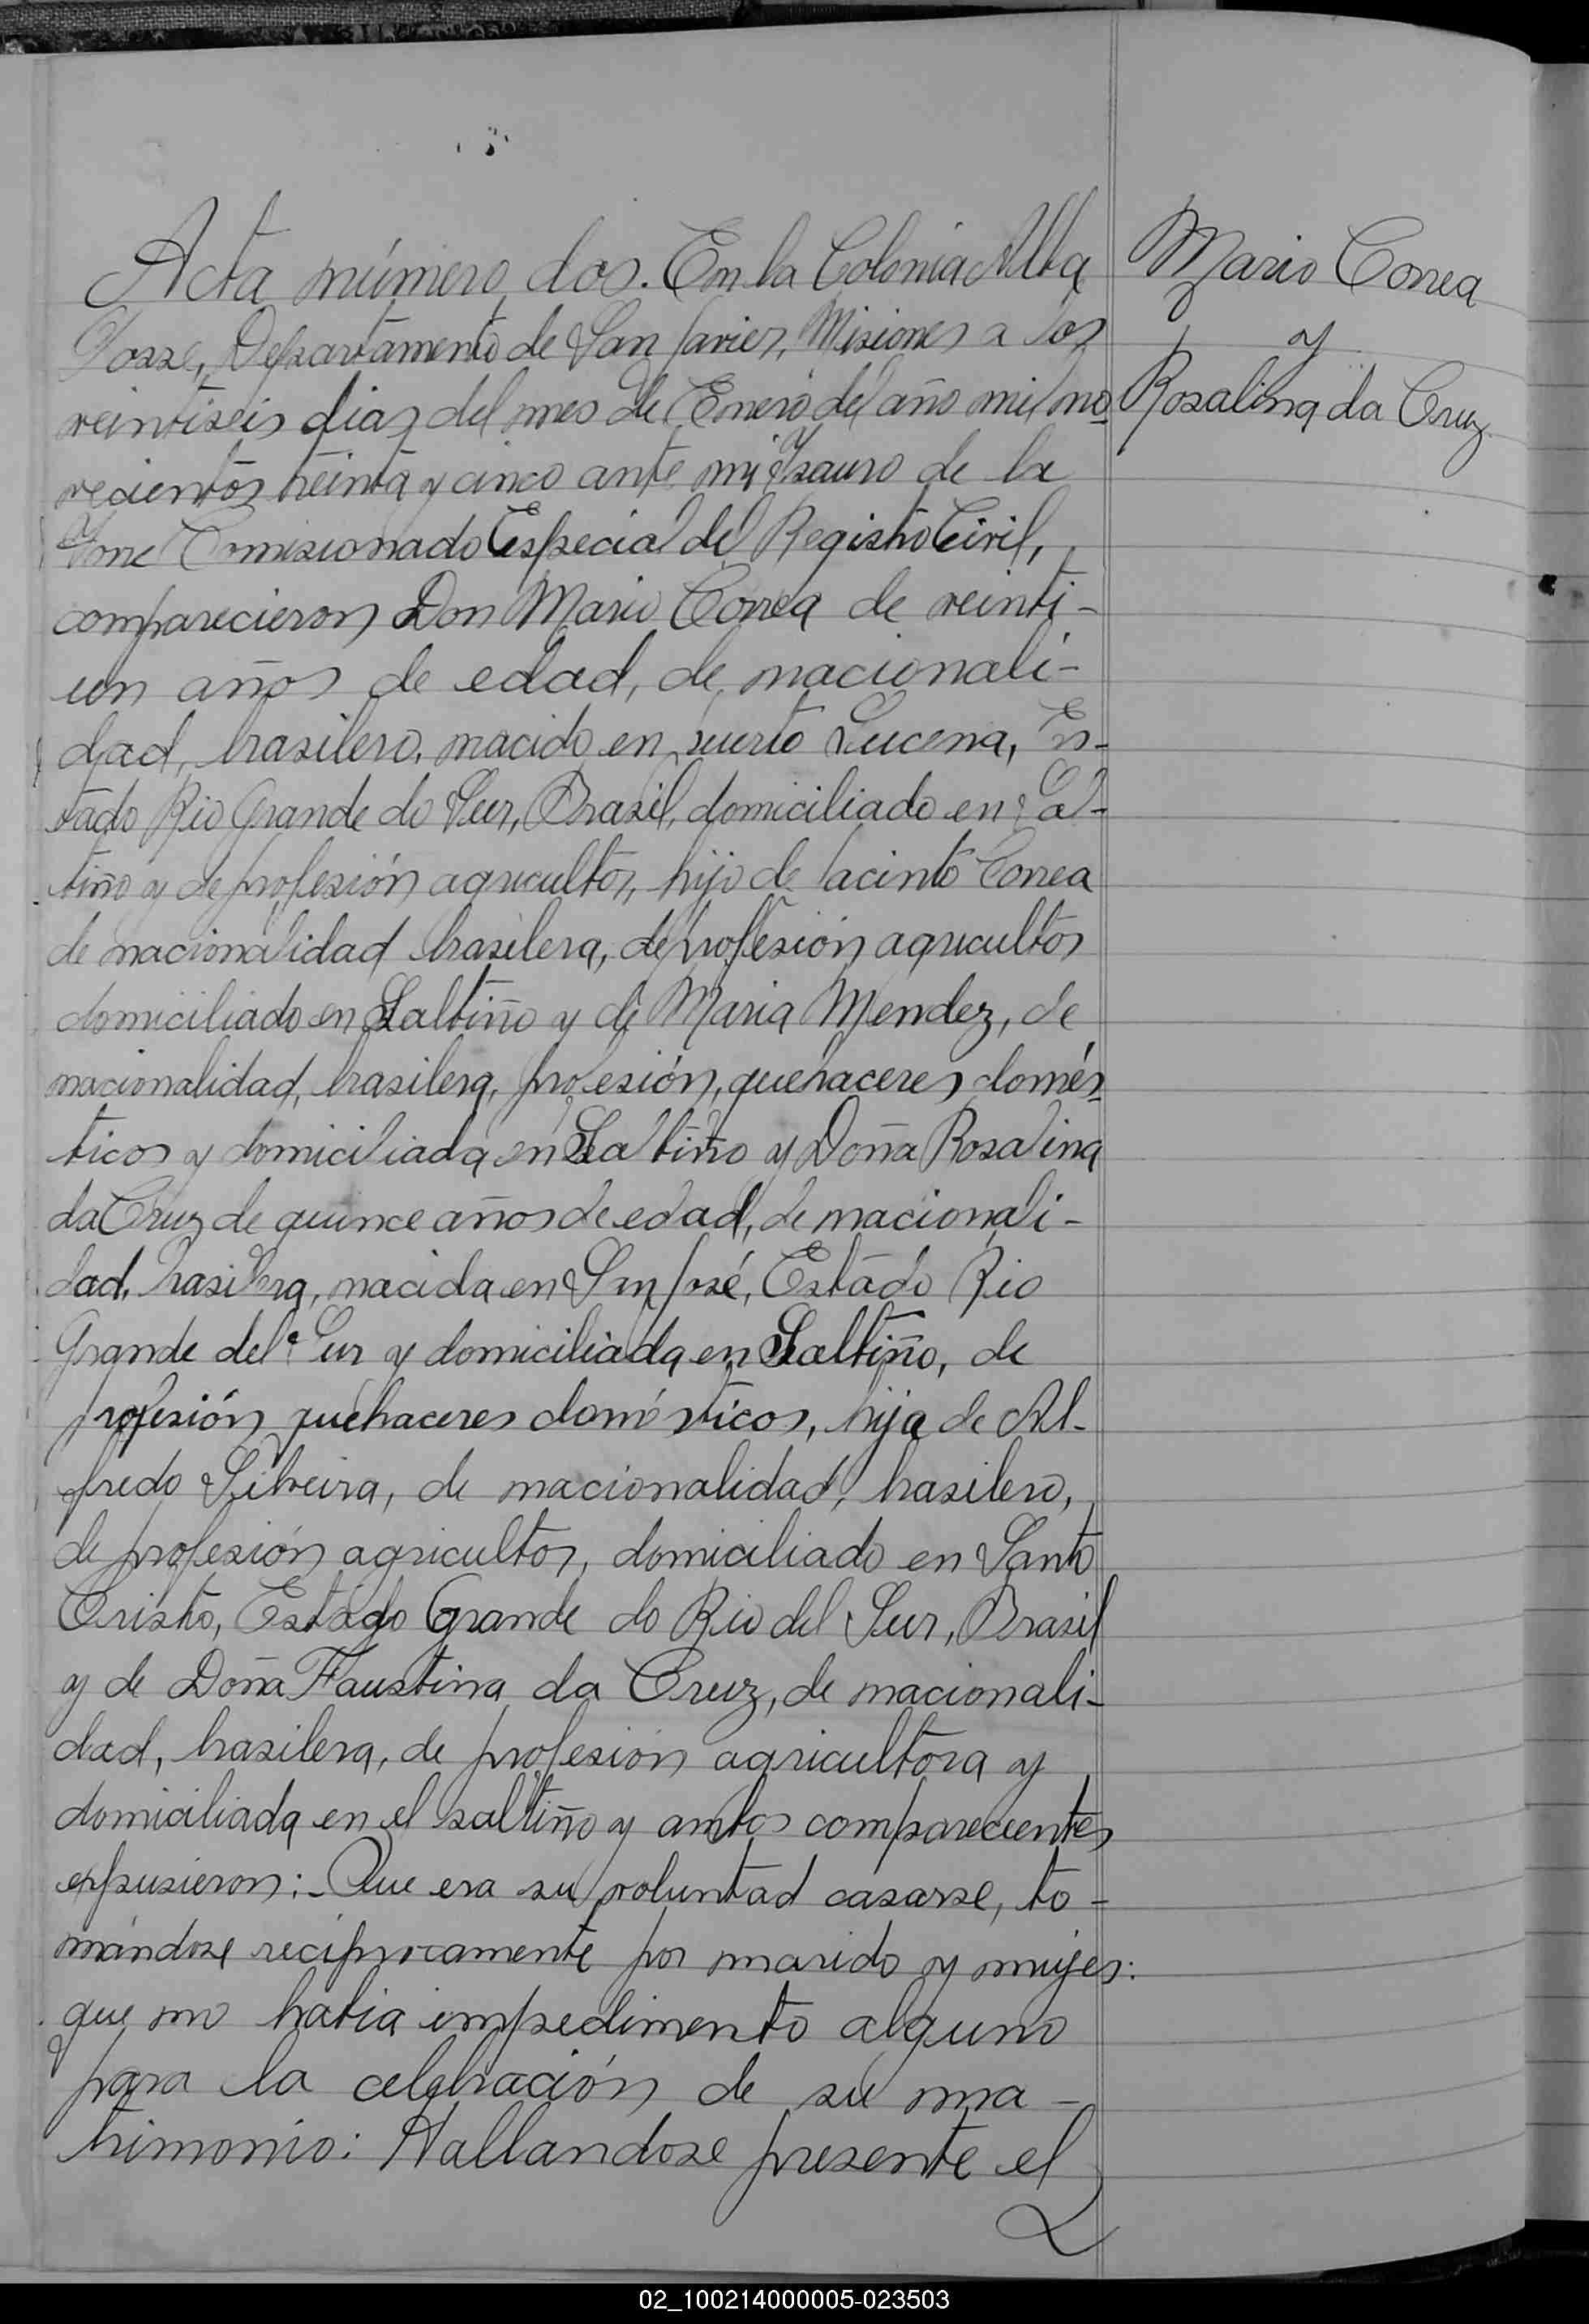 Acta número dos. En la Colonia Alba
Posse, Departamento de San Javier, Misiones a los
veintiseis dias del mes de Enero del año mil no-
vecientos treinta y cinco ante mi Isauro de la
Torre Comisionado Especial del Registro Civil,
comparecieron Don Mario Correa de veinti-
un años de edad, de nacionali-
dad, brasilero, nacido en puerto Lucena, Es-
tado Rio Grande do Sur, Brasil, domiciliado en Sal-
tiño y de profesión agricultor, hijo de Jacinto Correa
de nacionalidad brasilera, de profesión agricultor
domiciliado en Saltiño y de Maria Mendez, de
nacionalidad, brasilera, profesión, quehaceres domés-
ticos y domiciliada en Saltiño y Doña Rosalina
da Cruz de quince años de edad, de nacionali-
dad, brasilera, nacida en San José, Estado Rio
Grande del Sur y domiciliada en Saltiño, de
profesión quehaceres domésticos, hija de Al-
fredo Silveira, de nacionalidad, brasilero,
de profesión agricultor, domiciliado en Santo
Cristo, Estado Grande do Rio del Sur, Brasil
y de Doña Faustina da Cruz, de nacionali-
dad, brasilera, de profesión agricultora y
domiciliada en el saltiño y ambos comparecientes
expusieron:- Que era su voluntad casarse, to-
mándose reciprocamente por marido y mujer:
que no habia impedimento alguno
para la celebración de su ma-
trimonio: Hallandose presente el
Mario Correa
y
Rosalina da Cruz
02_100214000005-023503